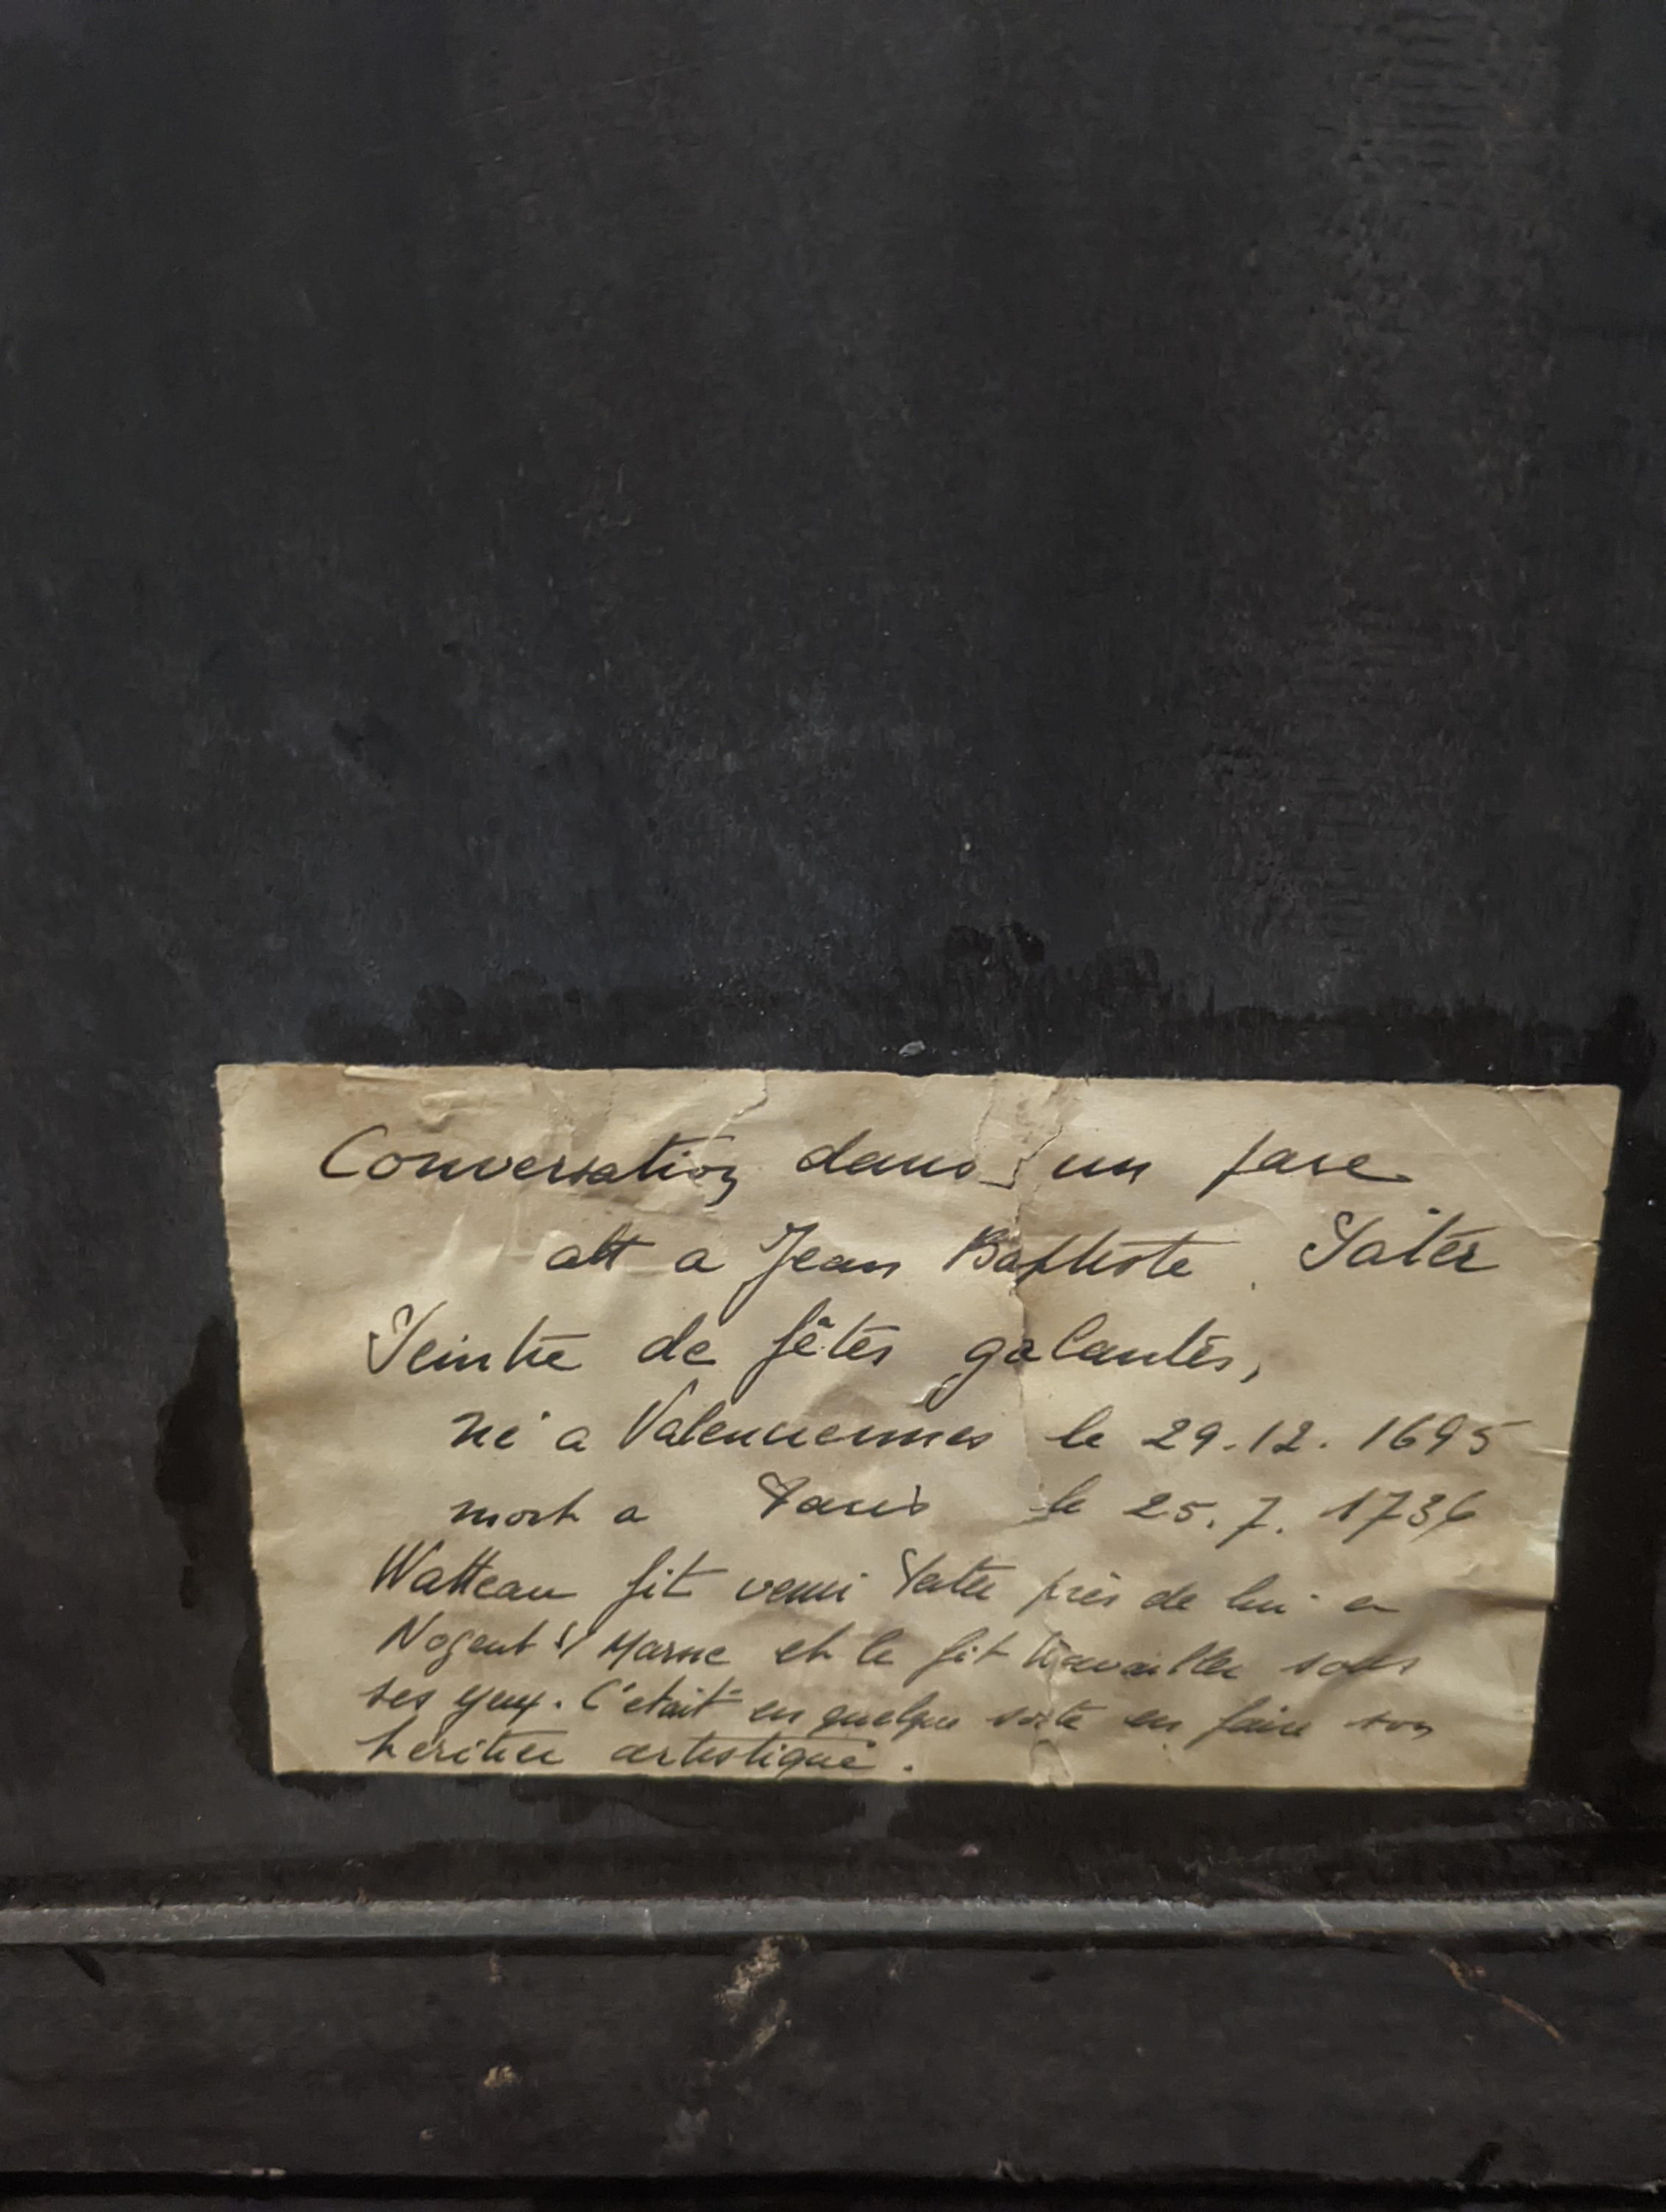 Conversation dans un parc
att a Jean Baptiste Pater
Peintre de fêtes galantes,
né a Valenciennes le 29.12.1695
mort a Paris le 25.7.1736
Watteau fit venir Pater près de lui a
Nogent s/ Marne et le fit travailler sous
ses yeux. C'etait en quelque sorte en faire son
heritier artistique.